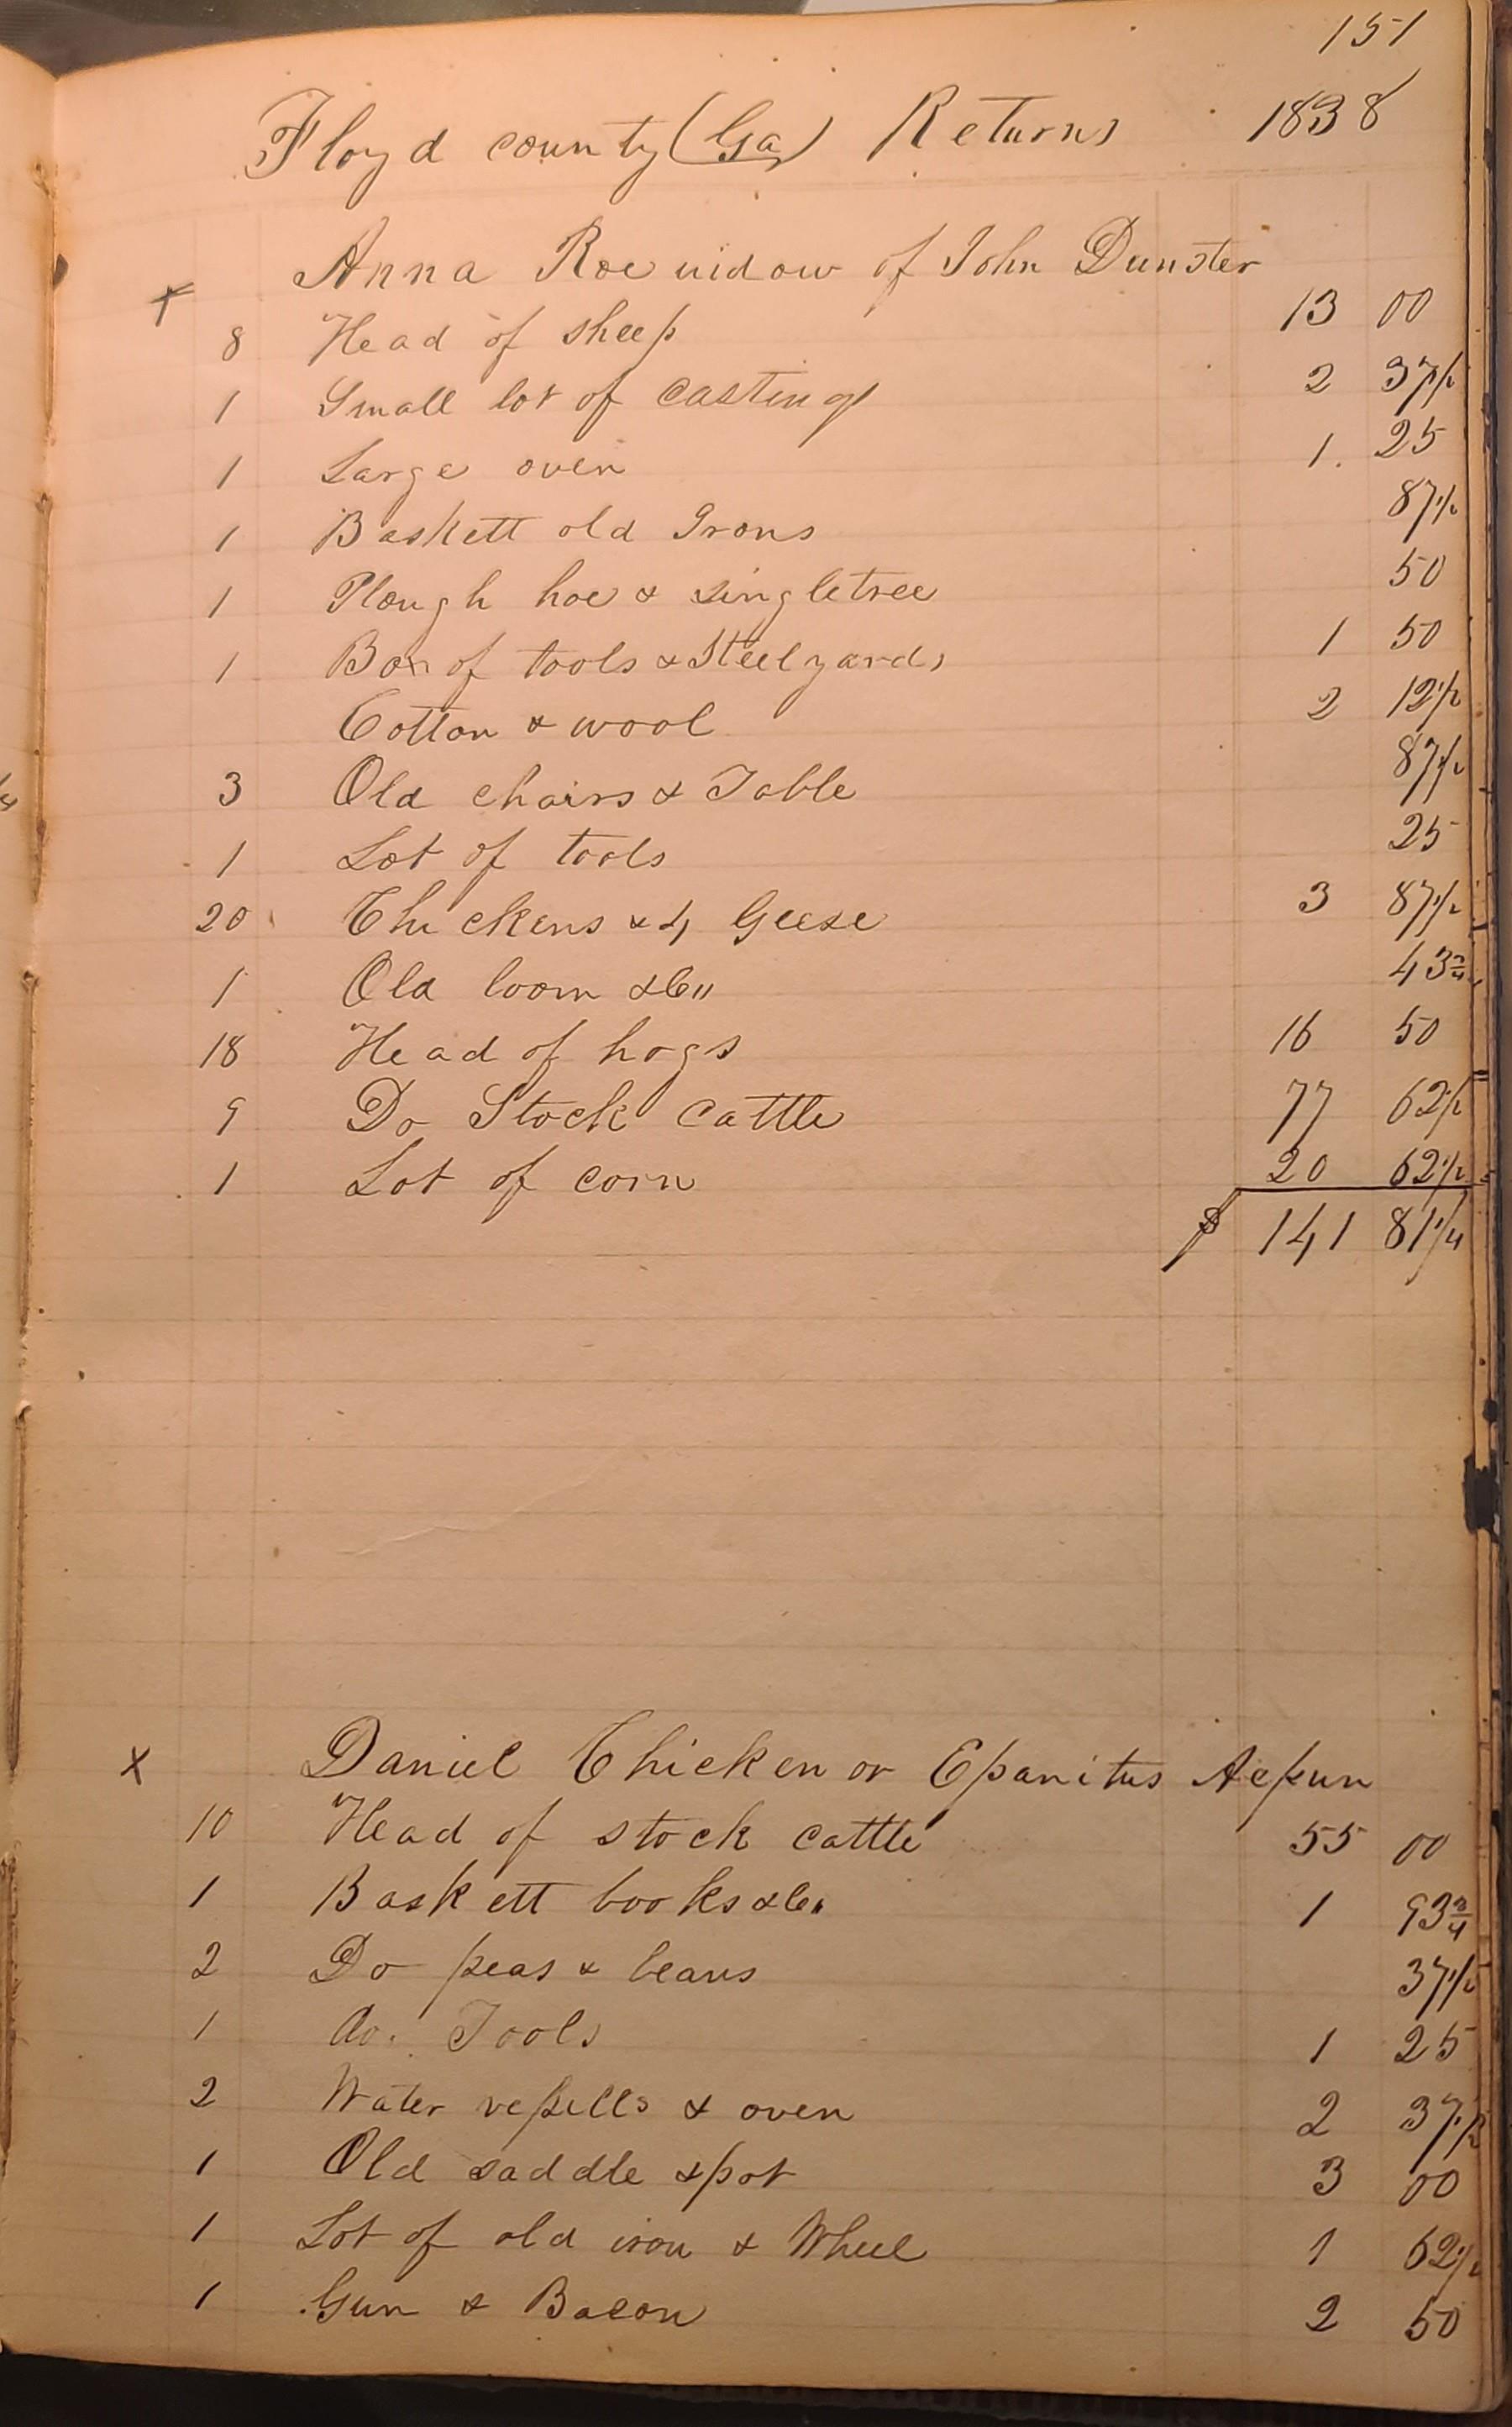 151
Floyd county (Ga) Returns 1838
Anna Roe widow of John Dunster
8 Head of sheep 13 00
1 Small lot of castings 2 37 1/2
1 Large oven 1. 25
1 Baskett old Irons 87 1/2
1 Plough hoe & singletree 50
1 Box of tools & Steelyards 1 50
Cotton & wool 2 12 1/2
3 Old chairs & Table 87 1/2
1 Lot of tools 25
20 Chickens & 4 Geese 3 87 1/2
1 Old loom &c" 43 3/4
18 Head of hogs 16 50
9 Do Stock Cattle 77 62 1/2
1 Lot of corn 20 62 1/2
$ 141 81 1/4
x Daniel Chicken or Epanitus Aepun
10 Head of stock cattle 55 00
1 Baskett books &c" 1 93 3/4
2 Do peas & beans 37 1/2
1 do. Tools 1 25
2 Water vessells & oven 2 37 1/2
1 Old saddle & pot 3 00
1 Lot of old iron & Wheel 1 62 1/2
1 Gun & Bacon 2 50